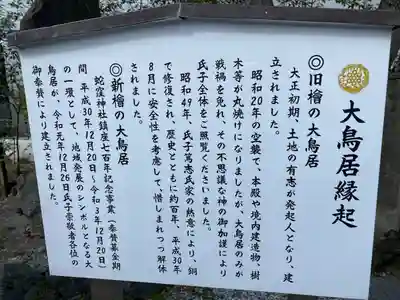 大鳥居縁起
◎旧檜の大鳥居
大正初期、土地の有志が発起人となり、建
立されました。
昭和20年の空襲で、本殿や境内建造物、樹
木等が丸焼けになりましたが、大鳥居のみが
戦禍を免れ、その不思議な神の御加護により
氏子全体をご照覧くださいました。
昭和49年、氏子篤志氏家の熱意により、銅
で修復され、歴史とともに約百年、平成30年
8月に安全性を考慮して、惜しまれつつ解体
されました。
◎新檜の大鳥居
蛇窪神社鎮座七百年記念事業(奉賛募金期
間 平成30年12月20日~令和3年12月20日)
の一環として、地域発展のシンボルとなる大
鳥居が、令和元年12月26日氏子崇敬者各位の
御奉賛により建立されました。